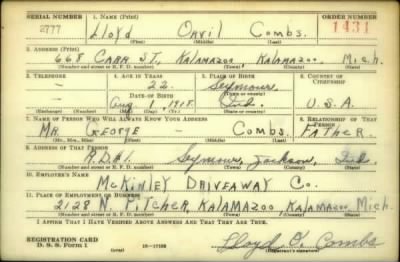 SERIAL NUMBER 1. NAME (Print) ORDER NUMBER
2777 Lloyd Orvil Combs. 1431
(First) (Middle) (Last)
2. ADDRESS (Print)
668 CARR ST, KALAMAZOO, KALAMAZOO, Mich
(Number and street or R. F. D. number) (Town) (County) (State)
3. TELEPHONE 4. AGE IN YEARS 5. PLACE OF BIRTH 6. COUNTRY OF CITIZENSHIP
- 22 Seymour
DATE OF BIRTH (Town or county)
- Aug 1, 1918. Ind. U.S.A
(Exchange) (Number) (Mo.) (Day) (Yr.) (State or country)
7. NAME OF PERSON WHO WILL ALWAYS KNOW YOUR ADDRESS 8. RELATIONSHIP OF THAT PERSON
MR. GEORGE - Combs. FATHER.
(Mr., Mrs., Miss) (First) (Middle) (Last)
9. ADDRESS OF THAT PERSON
R.D.#1. Seymour, Jackson, Ind.
(Number and street or R. F. D. number) (Town) (County) (State)
10. EMPLOYER'S NAME
McKINLEY DRIVEAWAY Co.
11. PLACE OF EMPLOYMENT OR BUSINESS
2128 N. PITCHER, KALAMAZOO KALAMAZOO, Mich
(Number and street or R. F. D. number) (Town) (County) (State)
I AFFIRM THAT I HAVE VERIFIED ABOVE ANSWERS AND THAT THEY ARE TRUE.
REGISTRATION CARD
D. S. S. Form 1 (over) 16-17105 Lloyd O. Combs
(Registrant's signature)